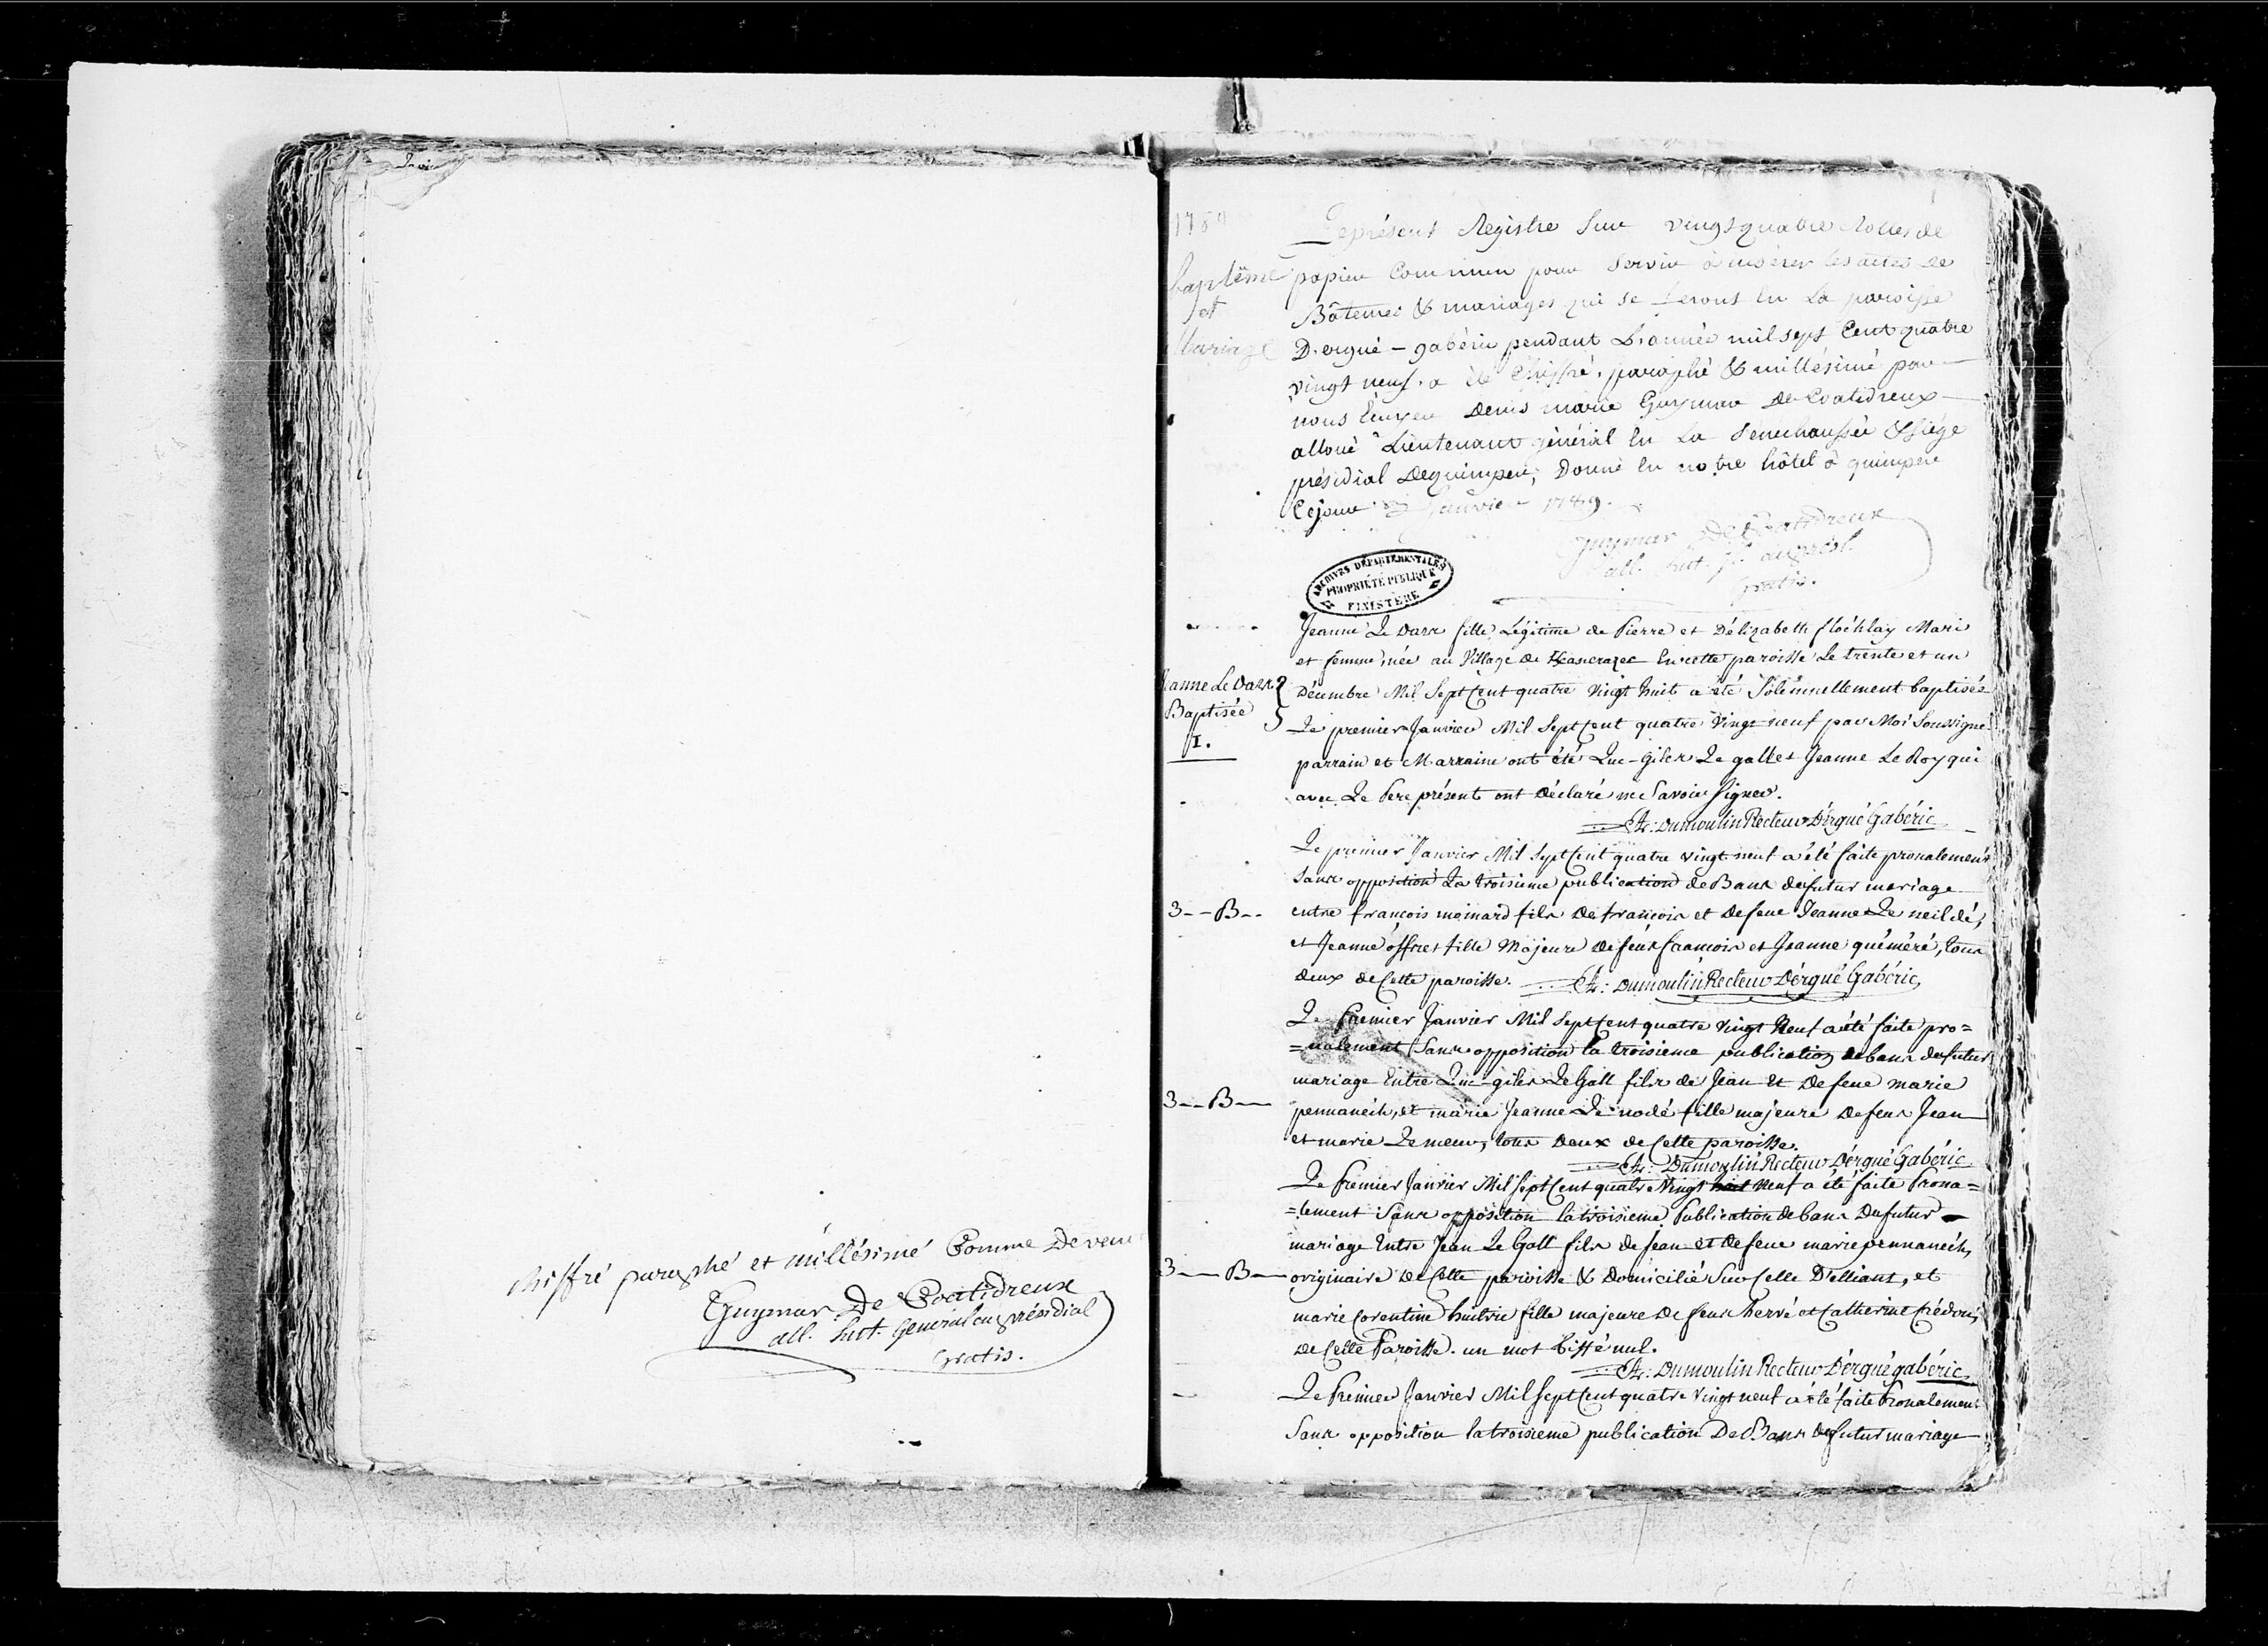 chiffré paraphé et millésimé Comme Devent
Guymar De Coatidreux
all. lieut. General au présidial
Gratis.
1789
baptême
et
Mariage
Le présent Registre sur vingt quatre Rolles de
papier Commun pour servir à insérer les actes de
Bâtemes & mariages qui se feront en La paroisse
D'ergué - gabéric pendant L'année mil sept Cent quatre
vingt neuf. a été Chiffré, paraphé & millésimé par
nous Ecuyer Denis marie Guymar De Coatidreux
alloué Lieutenant général en La Senechaussée & siége
présidial De quimper; Donné en notre hôtel à quimper
Ce jour Janvier 1789.
Guymar De Coatidreux
all. lieut. gl. au présl.
Gratis.
ARCHIVES DÉPARTEMENTALES
PROPRIÉTÉ PUBLIQUE
FINISTÈRE
Jeanne Le Darr
Baptisée
1.
Jeanne Le Darr fille Légitime de Pierre et D'élizabeth flochlay Mari
et femme, née au Village de En cette paroisse Le trente et un
Décembre Mil Sept Cent quatre Vingt huit a été Solemnellement baptisée
Le premier Janvier Mil Sept Cent quatre Vingt neuf par Moi Soussigné
parrain et Marraine ont été Luc-Giles Le gall et Jeanne Le Roy qui
avec Le Pere présents ont Déclaré ne Savoir Signer.
A: Dumoulin Recteur D'érgué Gabéric
3--B--
Le premier Janvier Mil Sept Cent quatre vingt neuf a été faite pronalement
Sans opposition La troisieme publication de Bans du futur mariage
entre francois moinard fils De francois et De feue Jeanne Le neildé,
et Jeanne offret fille Majeure De feus francois et Jeanne quéméré, tous
Deux de Cette paroisse. A: Dumoulin Recteur D'érgué Gabéric
3--B--
Le Premier Janvier Mil Sept Cent quatre Vingt Neuf a été faite pro=
=nalement Sans opposition la troisieme publication de bans du futur
mariage Entre Luc-giles Le Gall fils de Jean Et De feue marie
pennanéch, et marie Jeanne Le nodé fille majeure De feus Jean
et marie Le meur, tous Deux de Cette paroisse.
A: Dumoulin Recteur D'érgué Gabéric
3--B--
Le Premier Janvier Mil Sept Cent quatre Vingt huit Neuf a été faite Prona=
=lement Sans opposition la troisieme Publication de bans Du futur
mariage Entre Jean Le Gall fils de Jean et de feue marie pennanéch,
originaire De Cette paroisse & Domicilié Sur Celle D'elliant, et
marie Corentine huitric fille majeure De feus hervé et Catherine Crédou,
De Cette Paroisse. un mot biffé nul.
A: Dumoulin Recteur D'érgué gabéric
Le Premier Janvier Mil Sept Cent quatre Vingt neuf a été faite Pronalement
Sans opposition la troisieme publication De Bans du futur mariage